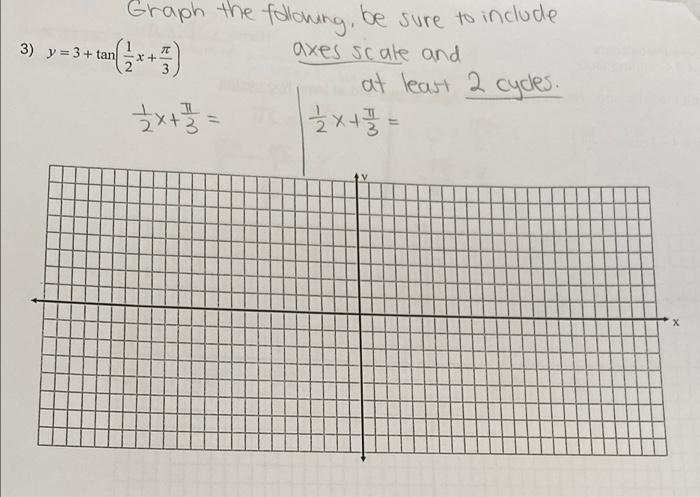 Graph the following, be sure to include
axes scale and
at least 2 cycles.
3) y = 3 + tan(1/2 x + π/3)
1/2 x + π/3 = | 1/2 x + π/3 =
y
x